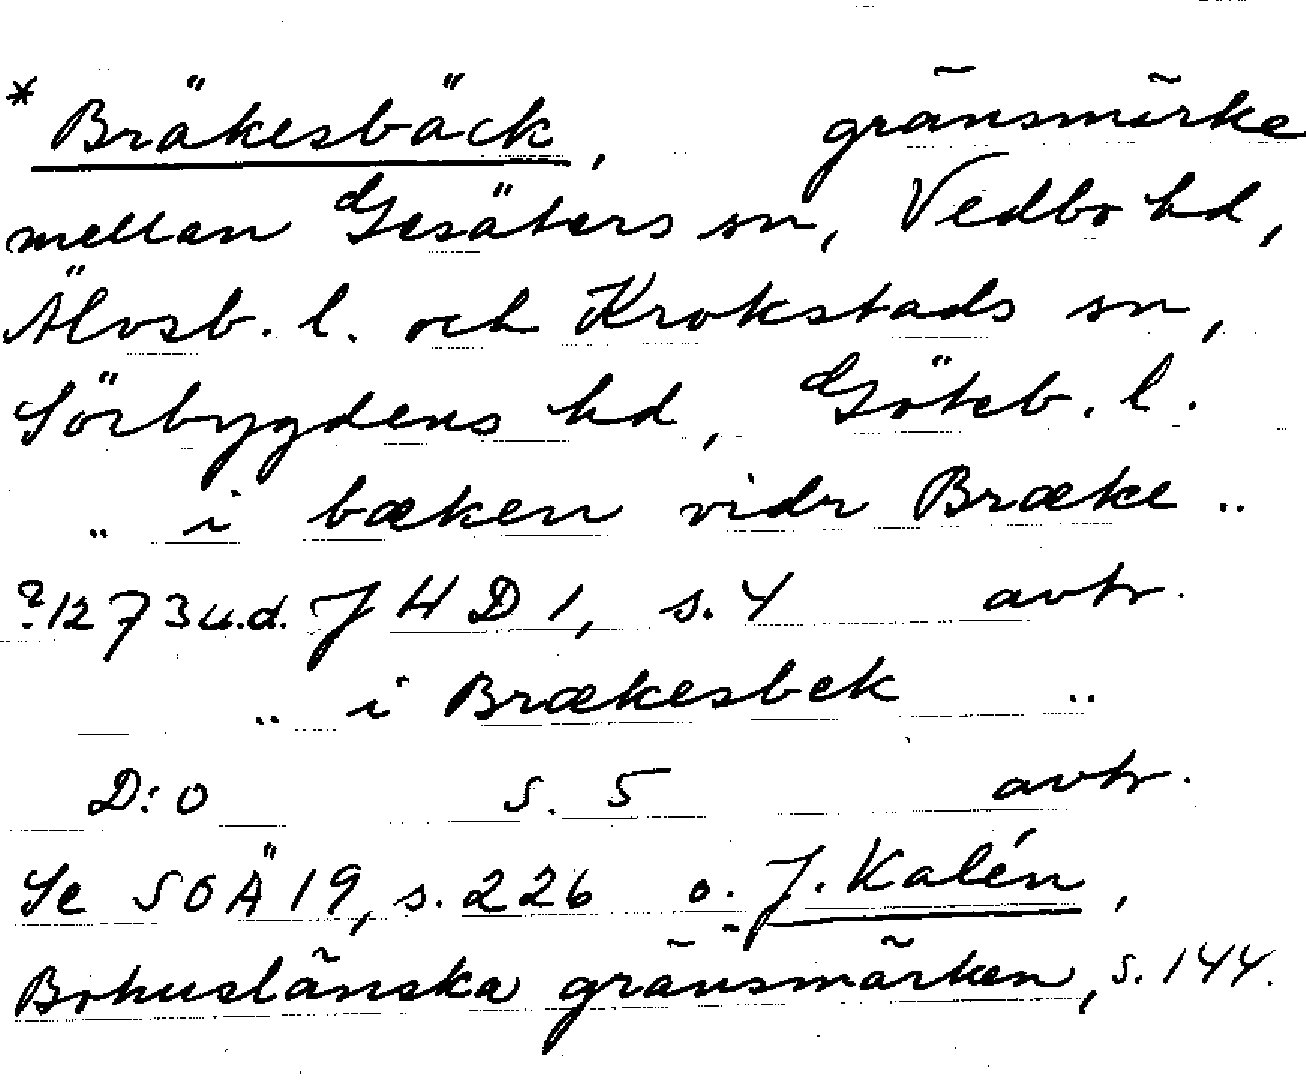 * Bräkesbäck, gränsmärke
mellan Gesäters sn, Vedbo hd,
Älvsb. l. och Krokstads sn,
Sörbygdens hd, Göteb. l.
.. i bæken vidr Bræke ..
?1273 u.d. JHD 1, s. 4 avtr.
.. i Brækesbek ..
D:o s. 5 avtr.
Se SOÄ 19, s. 226 o. J. Kalén,
Bohuslänska gränsmärken, s. 144.